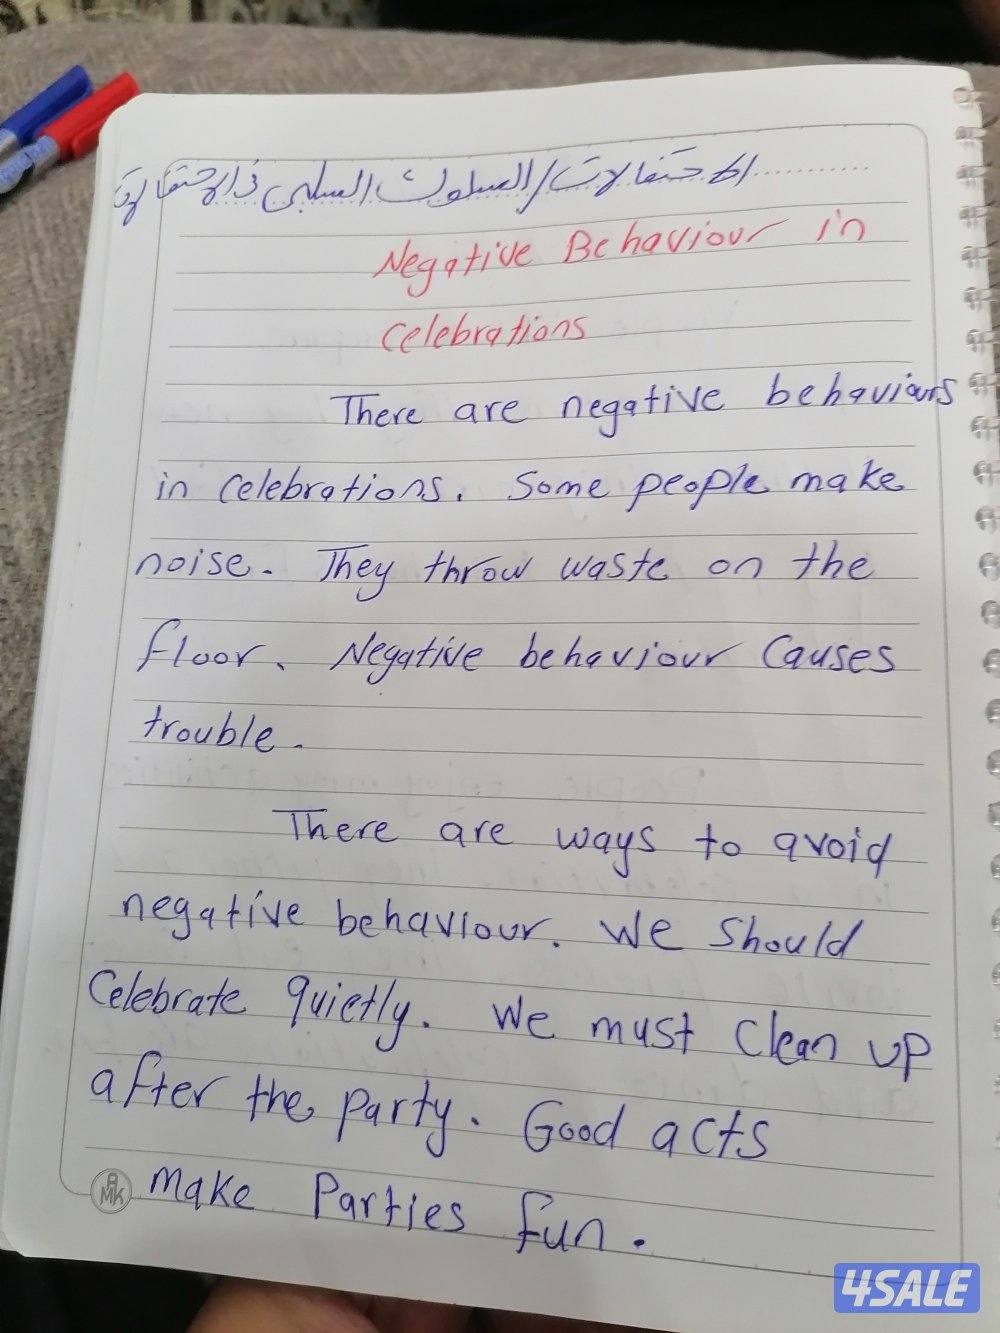 الاحتفالات/السلوك السلبى فى الاحتفالات
Negative Behaviour in
celebrations
There are negative behaviours
in celebrations. Some people make
noise. They throw waste on the
floor. Negative behaviour causes
trouble.
There are ways to avoid
negative behaviour. We should
celebrate quietly. We must clean up
after the party. Good acts
make parties fun.
AMK
4SALE